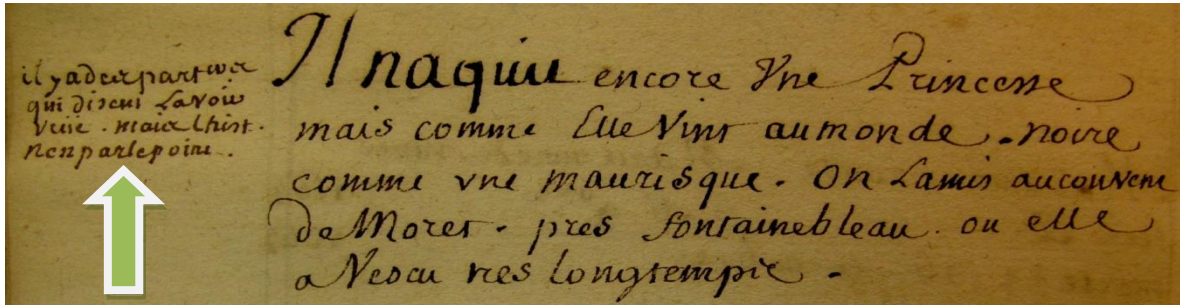 il y a des part
qui disent Lavoir
veüe. mais lhist.
nen parle point.
Il naquit encore Vne Princesse
mais comme Elle Vint au monde. noire
comme vne maurisque. On Lamis au couvent
de Moret. pres fontainebleau. ou elle
a Vescu tres longtemps.